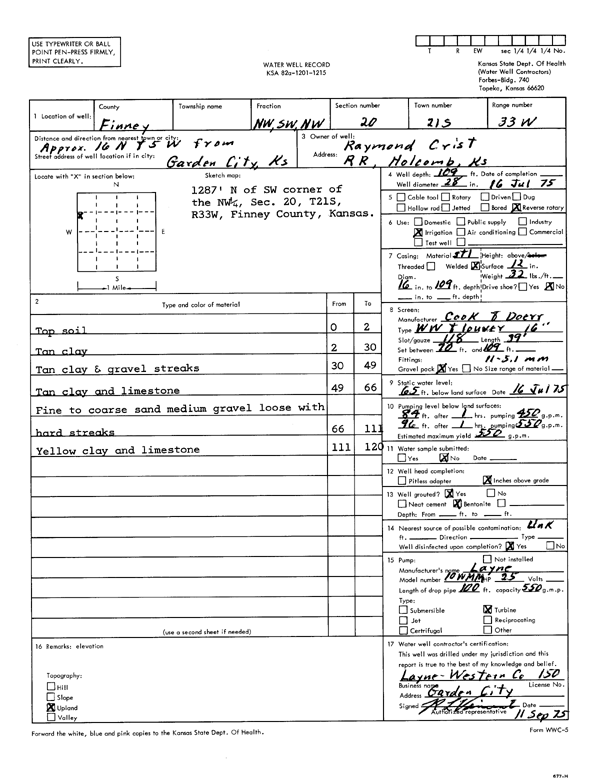 USE TYPEWRITER OR BALL
POINT PEN-PRESS FIRMLY,
PRINT CLEARLY.
T R EW sec 1/4 1/4 1/4 No.
WATER WELL RECORD
KSA 82a-1201-1215
Kansas State Dept. Of Health
(Water Well Contractors)
Forbes-Bldg. 740
Topeka, Kansas 66620
1 Location of well:
County
Finney
Township name
Fraction
NW, SW, NW
Section number
20
Town number
21S
Range number
33W
Distance and direction from nearest town or city:
Approx. 16 N & 5 W from
Street address of well location if in city:
Garden City, Ks
3 Owner of well:
Raymond Crist
Address:
RR, Holcomb, Ks
Locate with "X" in section below:
N
W
E
S
1 Mile
Sketch map:
1287' N of SW corner of
the NW¼, Sec. 20, T21S,
R33W, Finney County, Kansas.
4 Well depth: 109 ft. Date of completion
Well diameter 28 in. 16 Jul 75
5 Cable tool Rotary Driven Dug
Hollow rod Jetted Bored X Reverse rotary
6 Use: Domestic Public supply Industry
X Irrigation Air conditioning Commercial
Test well
7 Casing: Material stl Height: above/below
Threaded Welded X Surface 12 in.
Diam. Weight 32 lbs./ft.
16 in. to 109 ft. depth Drive shoe? Yes X No
in. to ft. depth
2 Type and color of material From To
Top soil 0 2
Tan clay 2 30
Tan clay & gravel streaks 30 49
Tan clay and limestone 49 66
Fine to coarse sand medium gravel loose with
hard streaks 66 111
Yellow clay and limestone 111 120
(use a second sheet if needed)
8 Screen:
Manufacturer Cook & Doerr
Type WW & louver 16"
Slot/gauze 118 Length 39'
Set between 70 ft. and 109 ft.
Fittings: 11-5.1 mm
Gravel pack X Yes No Size range of material
9 Static water level:
65 ft. below land surface Date 16 Jul 75
10 Pumping level below land surfaces:
84 ft. after 1 hrs. pumping 450 g.p.m.
96 ft. after 1 hrs. pumping 550 g.p.m.
Estimated maximum yield 550 g.p.m.
11 Water sample submitted:
Yes X No Date
12 Well head completion:
Pitless adapter X Inches above grade
13 Well grouted? X Yes No
Neat cement X Bentonite
Depth: From ft. to ft.
14 Nearest source of possible contamination: Unk
ft. Direction Type
Well disinfected upon completion? X Yes No
15 Pump: Not installed
Manufacturer's name Layne
Model number 10WMM HP 25 Volts
Length of drop pipe 100 ft. capacity 550 g.m.p.
Type:
Submersible X Turbine
Jet Reciprocating
Centrifugal Other
16 Remarks: elevation
Topography:
Hill
Slope
X Upland
Valley
17 Water well contractor's certification:
This well was drilled under my jurisdiction and this
report is true to the best of my knowledge and belief.
Layne-Western Co 150
Business name License No.
Address Garden City
Signed Date
Authorized representative 11 Sep 75
Forward the white, blue and pink copies to the Kansas State Dept. Of Health.
Form WWC-5
677-H